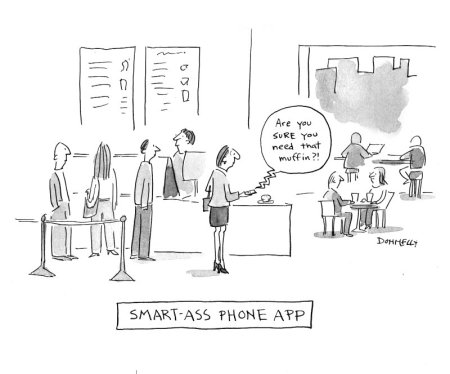 Are you
SURE you
need that
muffin?!
DONNELLY
SMART-ASS PHONE APP